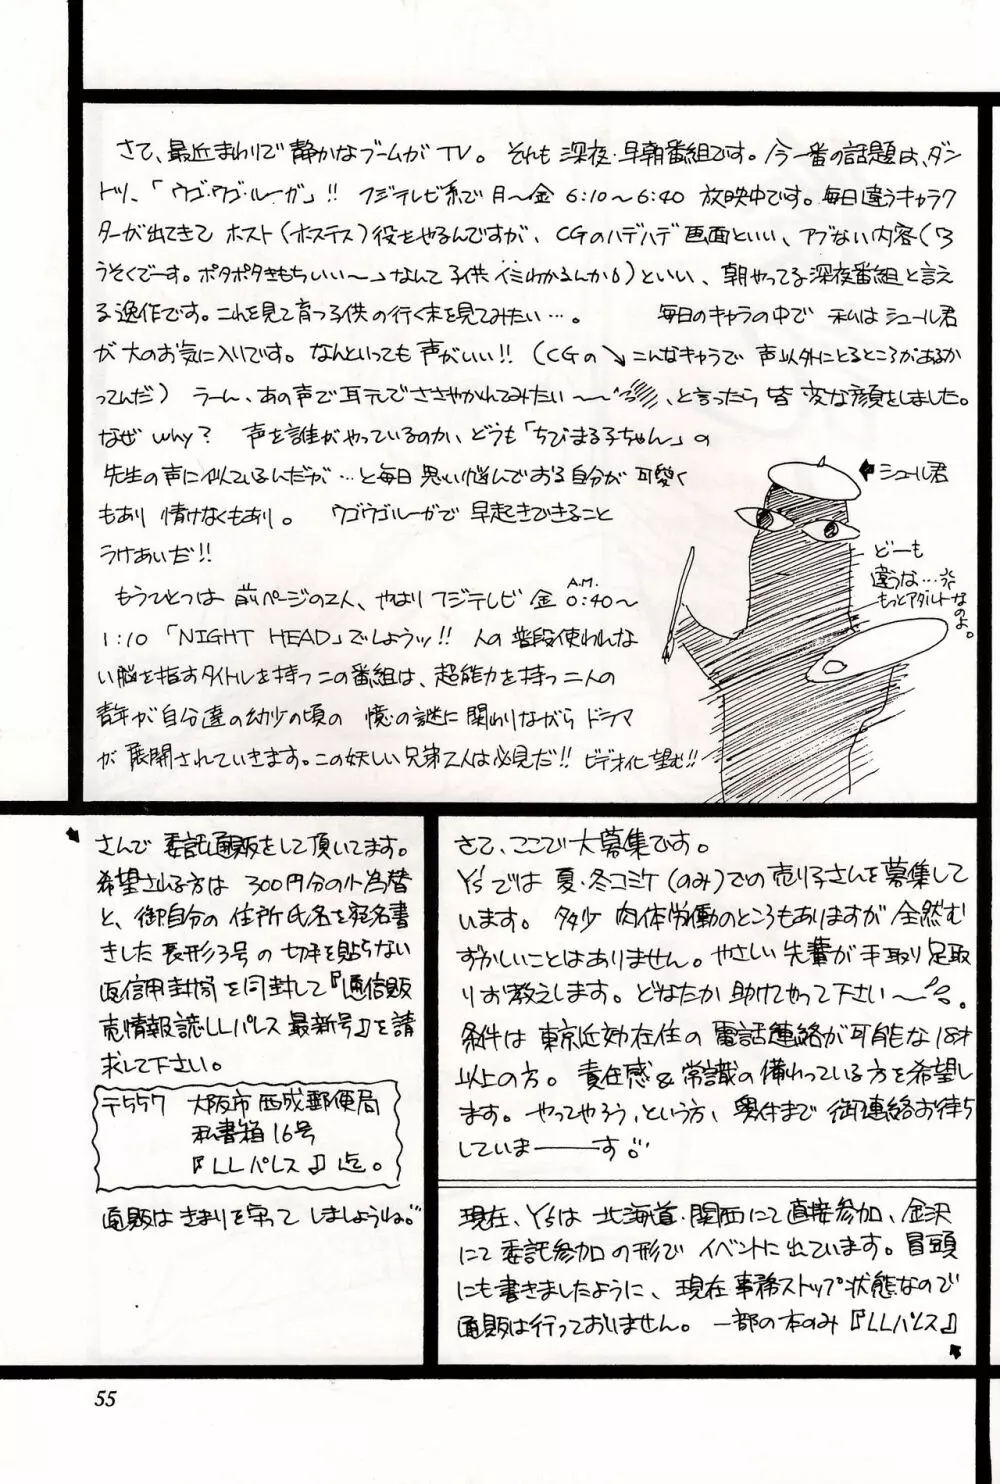 さて、最近まわりで静かなブームがTV。それも深夜・早朝番組です。今一番の話題は、ダン
トツ、「ウゴ・ウゴ・ルーガ」!! フジテレビ系で月〜金 6:10〜6:40 放映中です。毎日違うキャラク
ターが出てきて ホスト(ホステス)役をやるんですが、CGのハデハデ画面といい、アブない内容(「ろ
うそくでーす。ポタポタきもちいい〜」なんて子供イミわかるんか!)といい、朝やってる深夜番組と言え
る逸作です。これを見て育つ子供の行く末を見てみたい…。 毎日のキャラの中で 私はシュール君
が大のお気に入りです。なんといっても声がいい!!(CGの↘こんなキャラで 声以外にとるところがあるか
ってんだ) うーん、あの声で耳元でささやかれてみたい〜〜、と言ったら皆変な顔をしました。
なぜ why? 声を誰がやっているのか、どうも「ちびまる子ちゃん」の
先生の声に似ているんだが…と毎日思い悩んでおる自分が可愛く
もあり 情けなくもあり。 ウゴウゴルーガで 早起きできること
うけあいだ!!
もうひとつは 前ページの2人、やはりフジテレビ 金 A.M. 0:40〜
1:10 「NIGHT HEAD」でしょうッ!! 人の普段使われな
い脳を指すタイトルを持つこの番組は、超能力を持つ二人の
青年が自分達の幼少の頃の 憶の謎に関わりながらドラマ
が展開されていきます。この妖しい兄弟2人は必見だ!! ビデオ化望む!!
シュール君
どーも
違うな…
もっとアダルトなのよ。
さんで委託通販をして頂いてます。
希望される方は 300円分の小為替
と、御自分の住所氏名を宛名書
きした長形3号の切手を貼らない
返信用封筒を同封して『通信販
売情報誌LLパレス最新号』を請
求して下さい。
〒557 大阪市西成郵便局
私書箱16号
『LLパレス』迄。
通販はきまりを守って しましょうね。
さて、ここで大募集です。
Y'sでは夏・冬コミケ(のみ)での売り子さんを募集して
います。多少肉体労働のところもありますが全然む
ずかしいことはありません。やさしい先輩が手取り足取
りお教えします。どなたか助けてやって下さい〜。
条件は東京近効在住の電話連絡が可能な18才
以上の方。責任感&常識の備わっている方を希望し
ます。やってやろう、という方、奥付まで御連絡お待ち
していま———す。
現在、Y'sは北海道・関西にて直接参加、金沢
にて委託参加の形でイベントに出ています。冒頭
にも書きましたように、現在事務ストップ状態なので
通販は行っておりません。一部の本のみ『LLパレス』
55